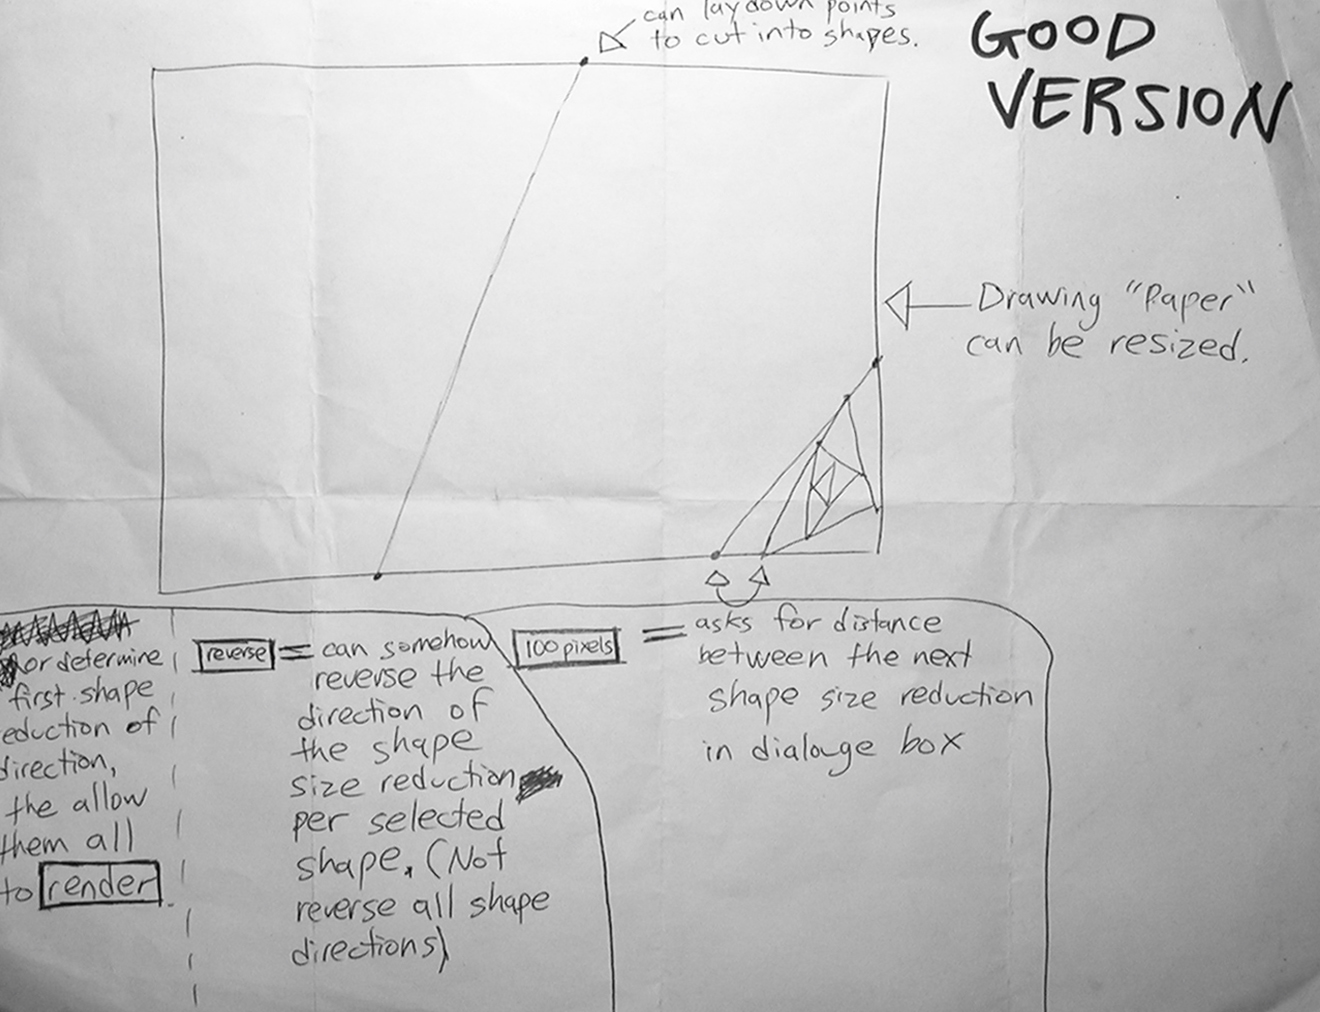 can lay down points
to cut into shapes.
GOOD
VERSION
Drawing "Paper"
can be resized.
or determine
first shape
eduction of
direction,
the allow
them all
to render
reverse = can somehow
reverse the
direction of
the shape
size reduction
per selected
shape. (Not
reverse all shape
directions)
100 pixels = asks for distance
between the next
shape size reduction
in dialouge box